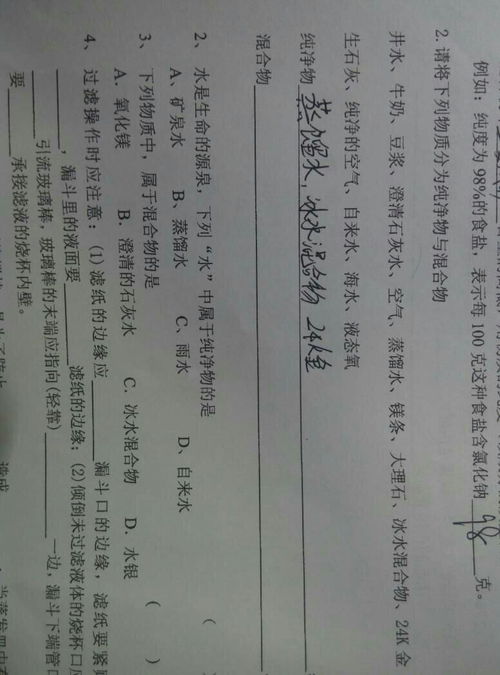 例如：纯度为 98%的食盐，表示每 100 克这种食盐含氯化钠 98 克。
2. 请将下列物质分为纯净物与混合物
井水、牛奶、豆浆、澄清石灰水、空气、蒸馏水、镁条、大理石、冰水混合物、24K 金
生石灰、纯净的空气、自来水、海水、液态氧
纯净物 蒸馏水，冰水混合物 24k金
混合物
2、水是生命的源泉，下列“水”中属于纯净物的是 (
A、矿泉水 B、蒸馏水 C、雨水 D、自来水
3、下列物质中，属于混合物的是 ( )
A．氧化镁 B．澄清的石灰水 C．冰水混合物 D．水银
4、过滤操作时应注意：(1)滤纸的边缘应 漏斗口的边缘，滤纸要紧
，漏斗里的液面要 滤纸的边缘；(2)倾倒未过滤液体的烧杯口应
引流玻璃棒，玻璃棒的末端应指向(轻靠) 一边，漏斗下端管口
要 承接滤液的烧杯内壁。